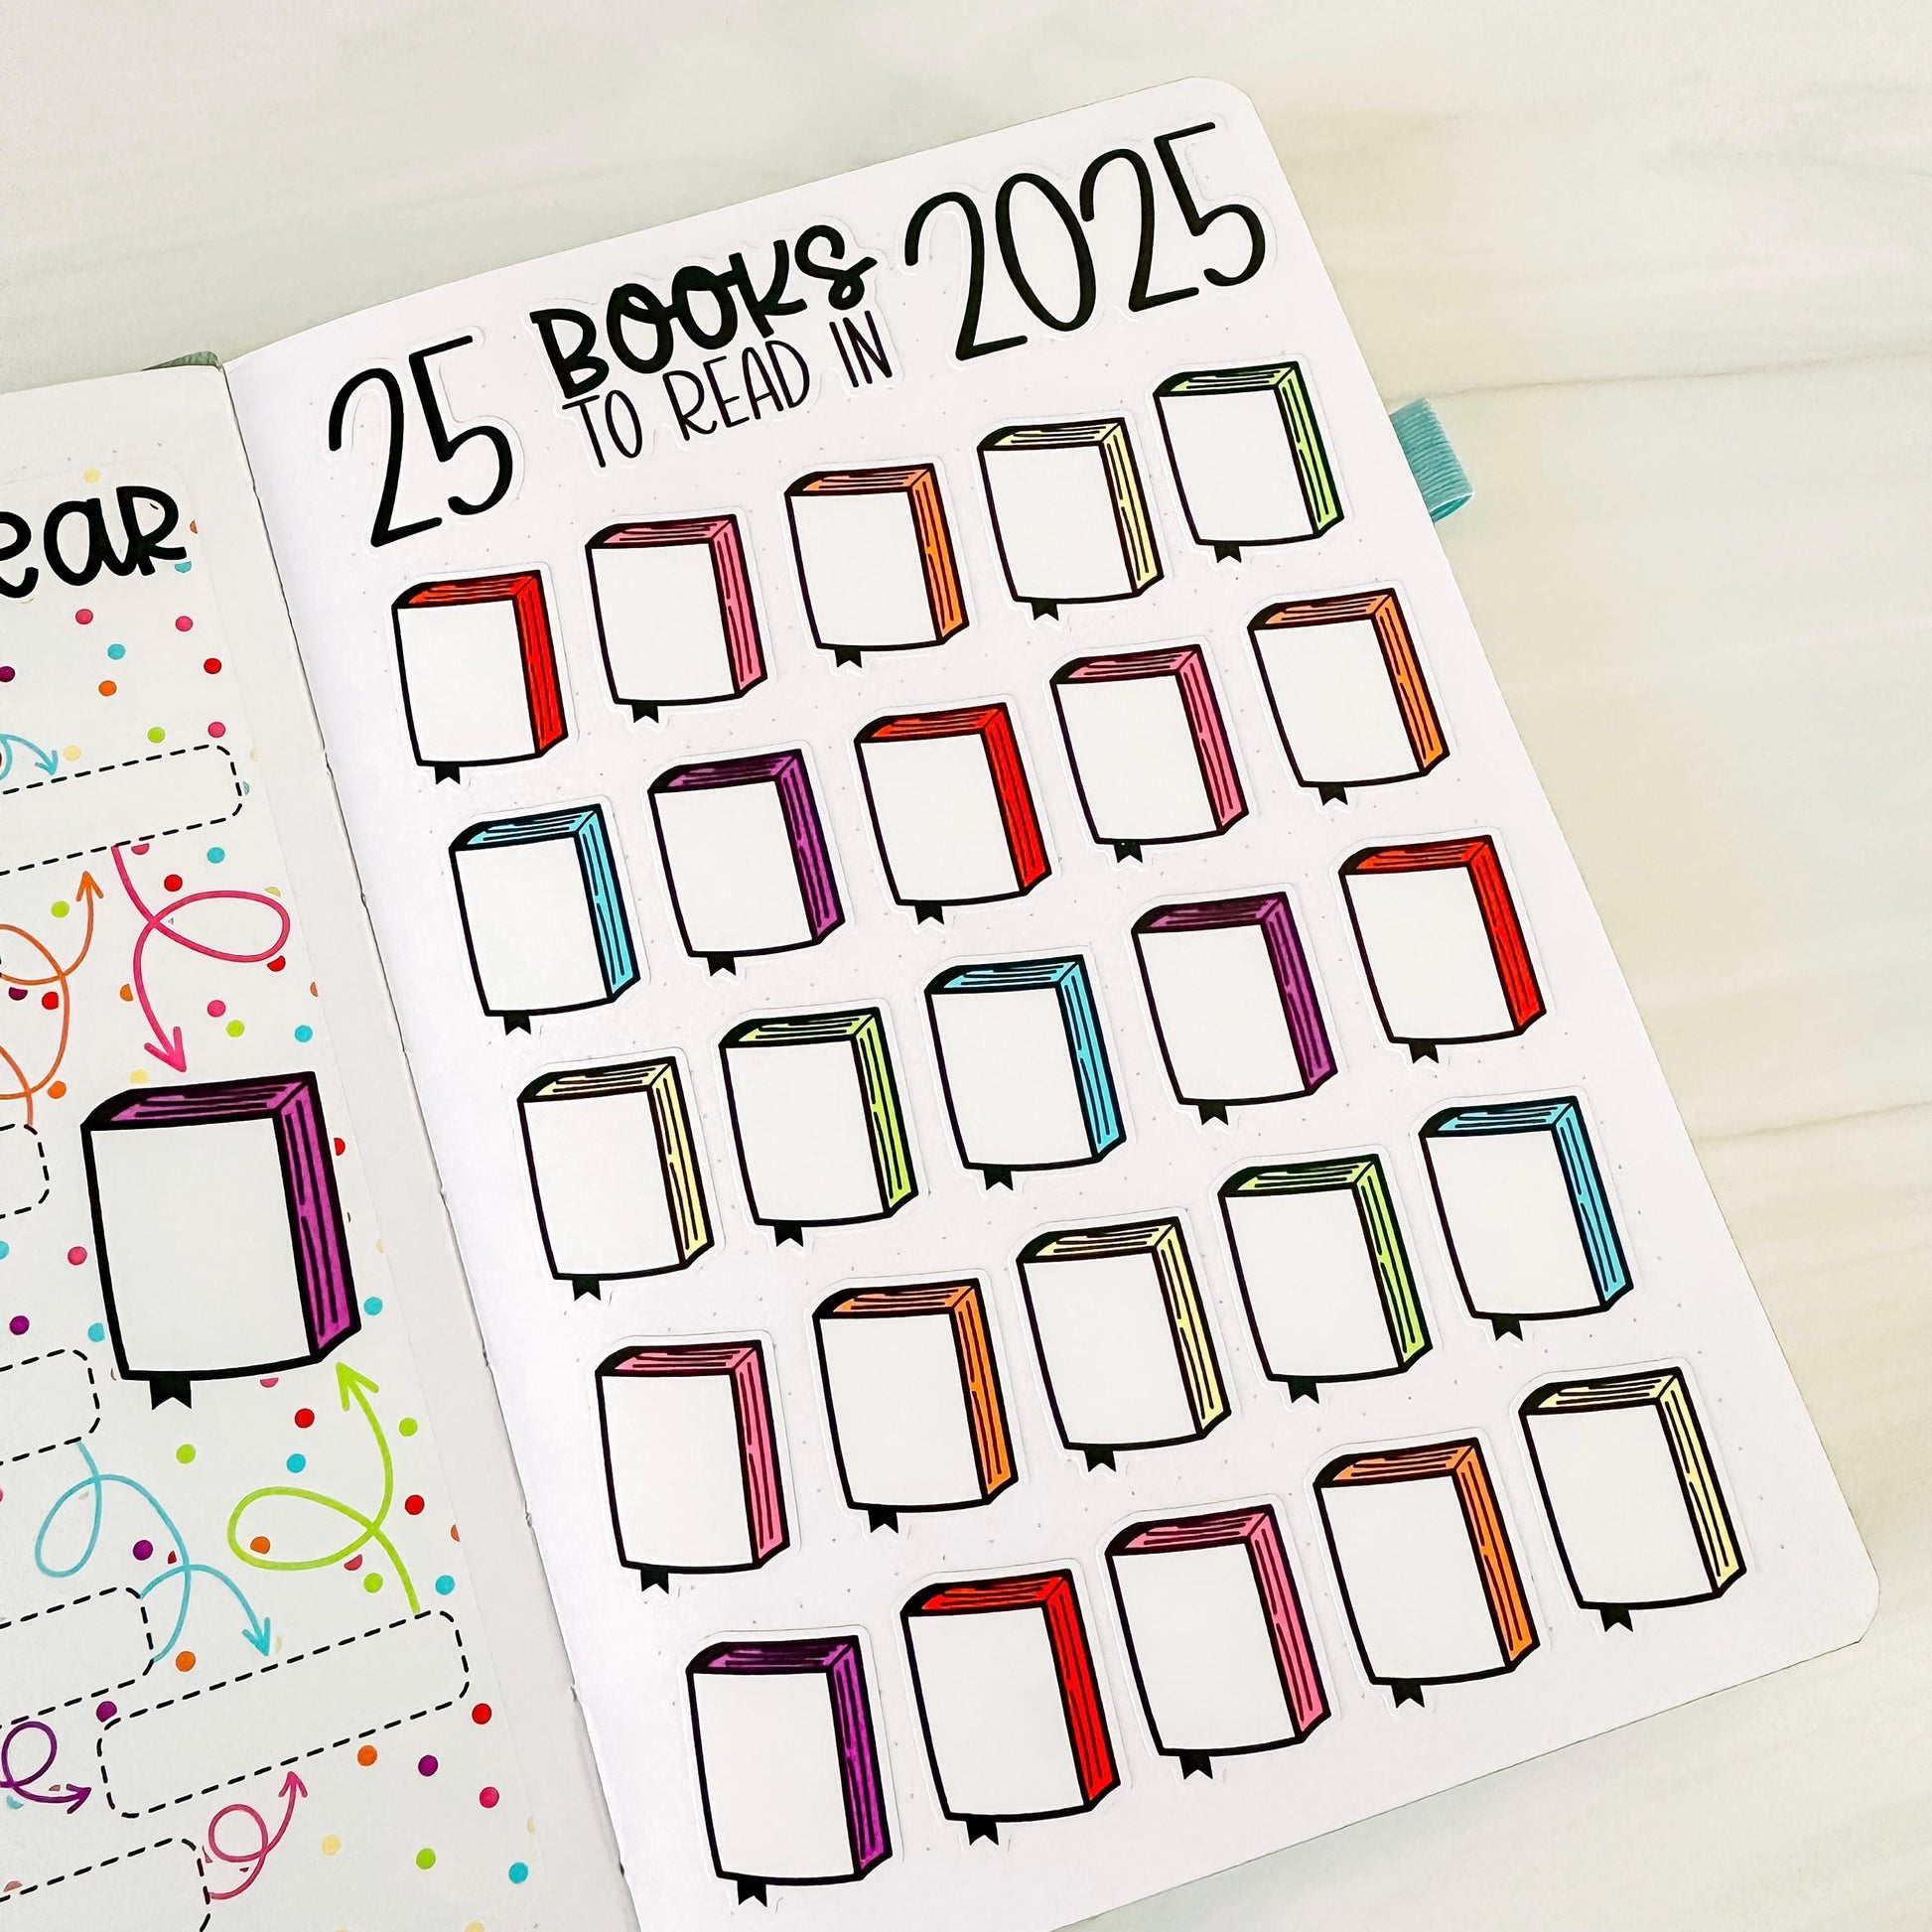 25 BOOKS TO READ IN 2025